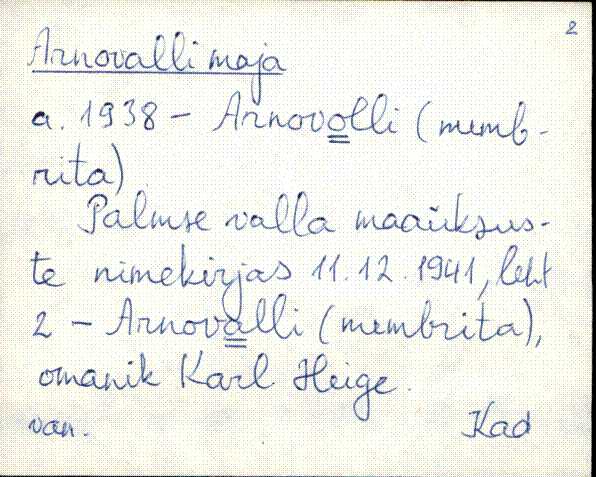 2
Arnovalli maja
a. 1938 - Arnovolli (numb-
rita)
Palmse valla maaüksus-
te nimekirjas 11.12.1941, leht
2 - Arnovalli (numbrita),
omanik Karl Heige.
van. Kad